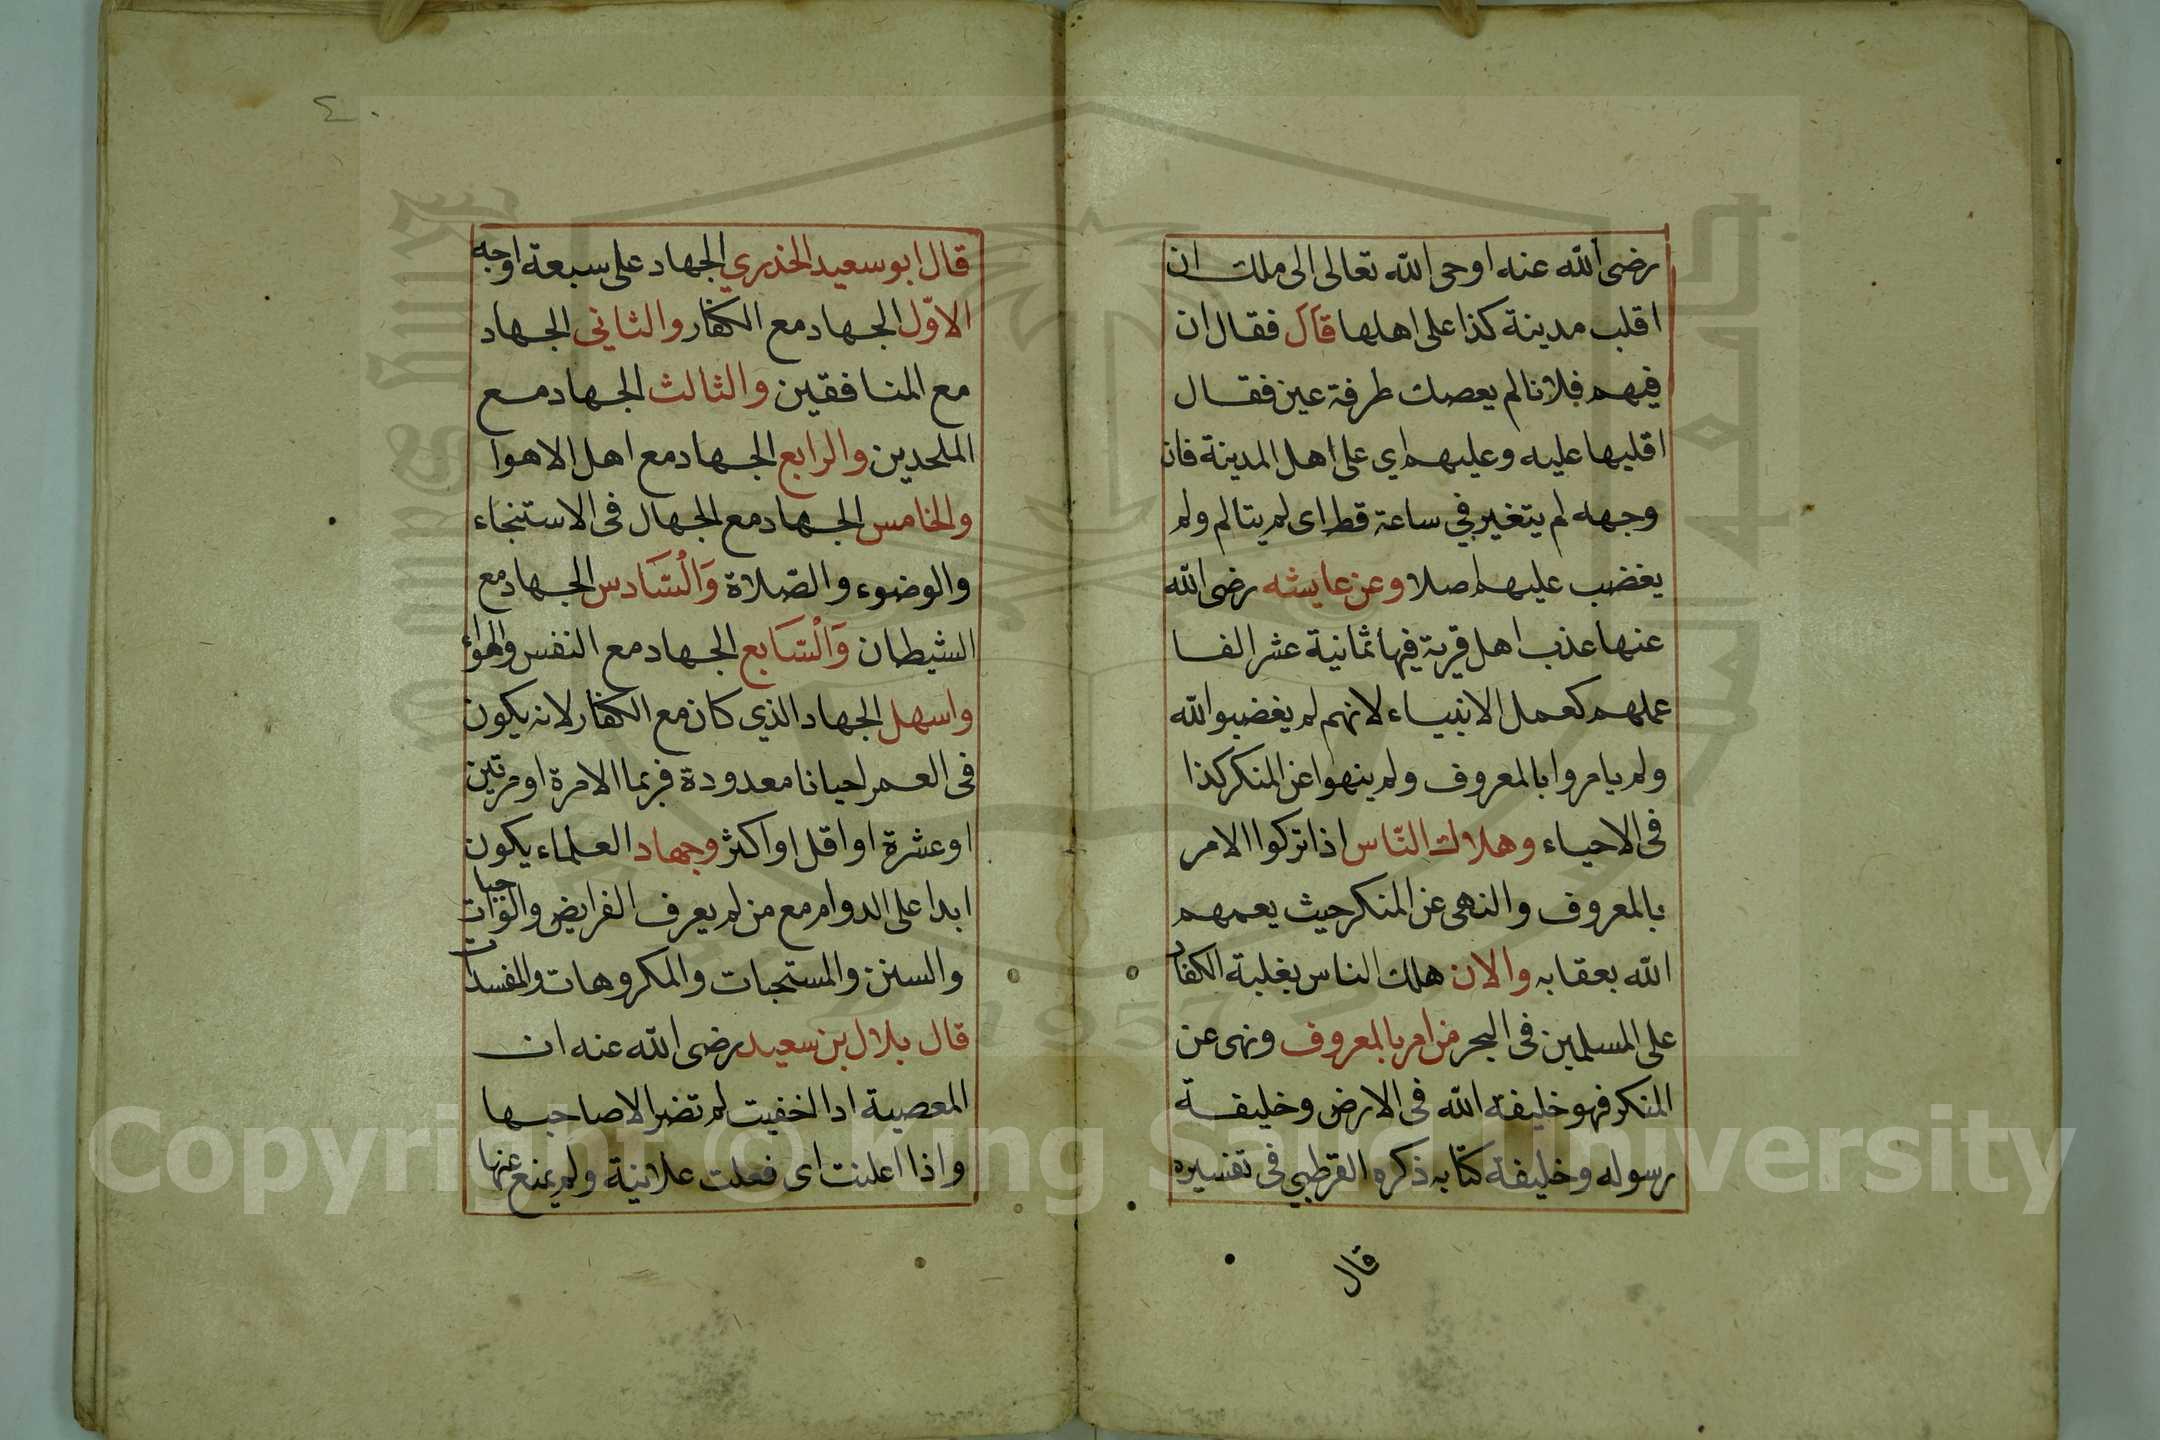 رضى الله عنه اوحى الله تعالى الى ملك ان
اقلب مدينة كذا على اهلها قال فقال ان
فيهم فلانا لم يعصك طرفة عين فقال
اقلبها عليه وعليهم اي على اهل المدينة فان
وجهه لم يتغير في ساعة قط اى لم يتالم ولم
يغضب عليهم اصلا وعن عايشه رضى الله
عنها عذب اهل قرية فيها ثمانية عشر الفا
عملهم كعمل الانبياء لانهم لم يغضبوا لله
ولم يامروا بالمعروف ولم ينهوا عن المنكر كذا
فى الاحياء وهلاك الناس اذا تركوا الامر
بالمعروف والنهى عن المنكر حيث يعمهم
الله بعقابه والان هلك الناس بغلبة الكفار
على المسلمين فى البحر من امر بالمعروف ونهى عن
المنكر فهو خليفة الله فى الارض وخليفة
رسوله وخليفة كتابه ذكره القرطبي فى تفسيره
قال
٤٠
قال ابو سعيد الخذري الجهاد على سبعة اوجه
الاوّل الجهاد مع الكفار والثاني الجهاد
مع المنافقين والثالث الجهاد مع
الملحدين والرابع الجهاد مع اهل الاهوا
والخامس الجهاد مع الجهال فى الاستنجاء
والوضوء والصّلاة وَالْسَّادس الجهاد مع
الشيطان وَالْسَّابع الجهاد مع النفس والهواء
واسهل الجهاد الذي كان مع الكفار لانه يكون
فى العمر احيانا معدودة فربما الامرة او مرتين
او عشرة او اقل او اكثر وجهاد العلماء يكون
ابدا على الدوام مع من لم يعرف الفرايض والواجبات
والسنن والمستحبات والمكروهات والمفسدات
قال بلال بن سعيد رضى الله عنه ان
المعصية اذا اخفيت لم تضر الا صاحبها
واذا اعلنت اى فعلت علانية ولم يمنع عنها
Copyright © King Saud University
1957